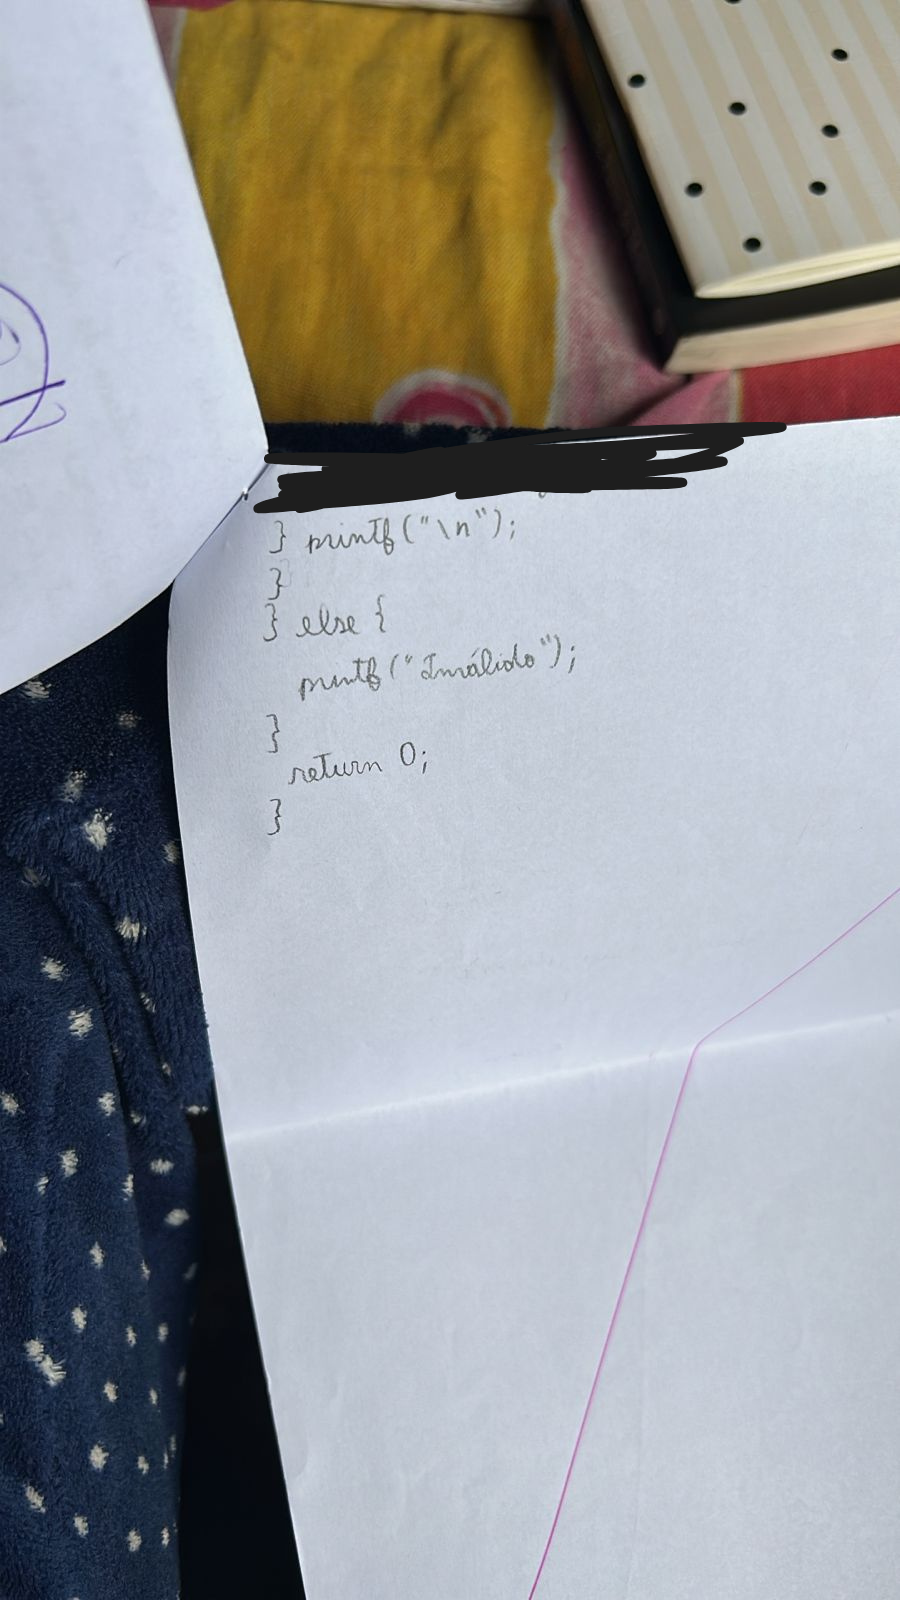 } printf("\n");
}
} else {
printf("Inválido");
}
return 0;
}